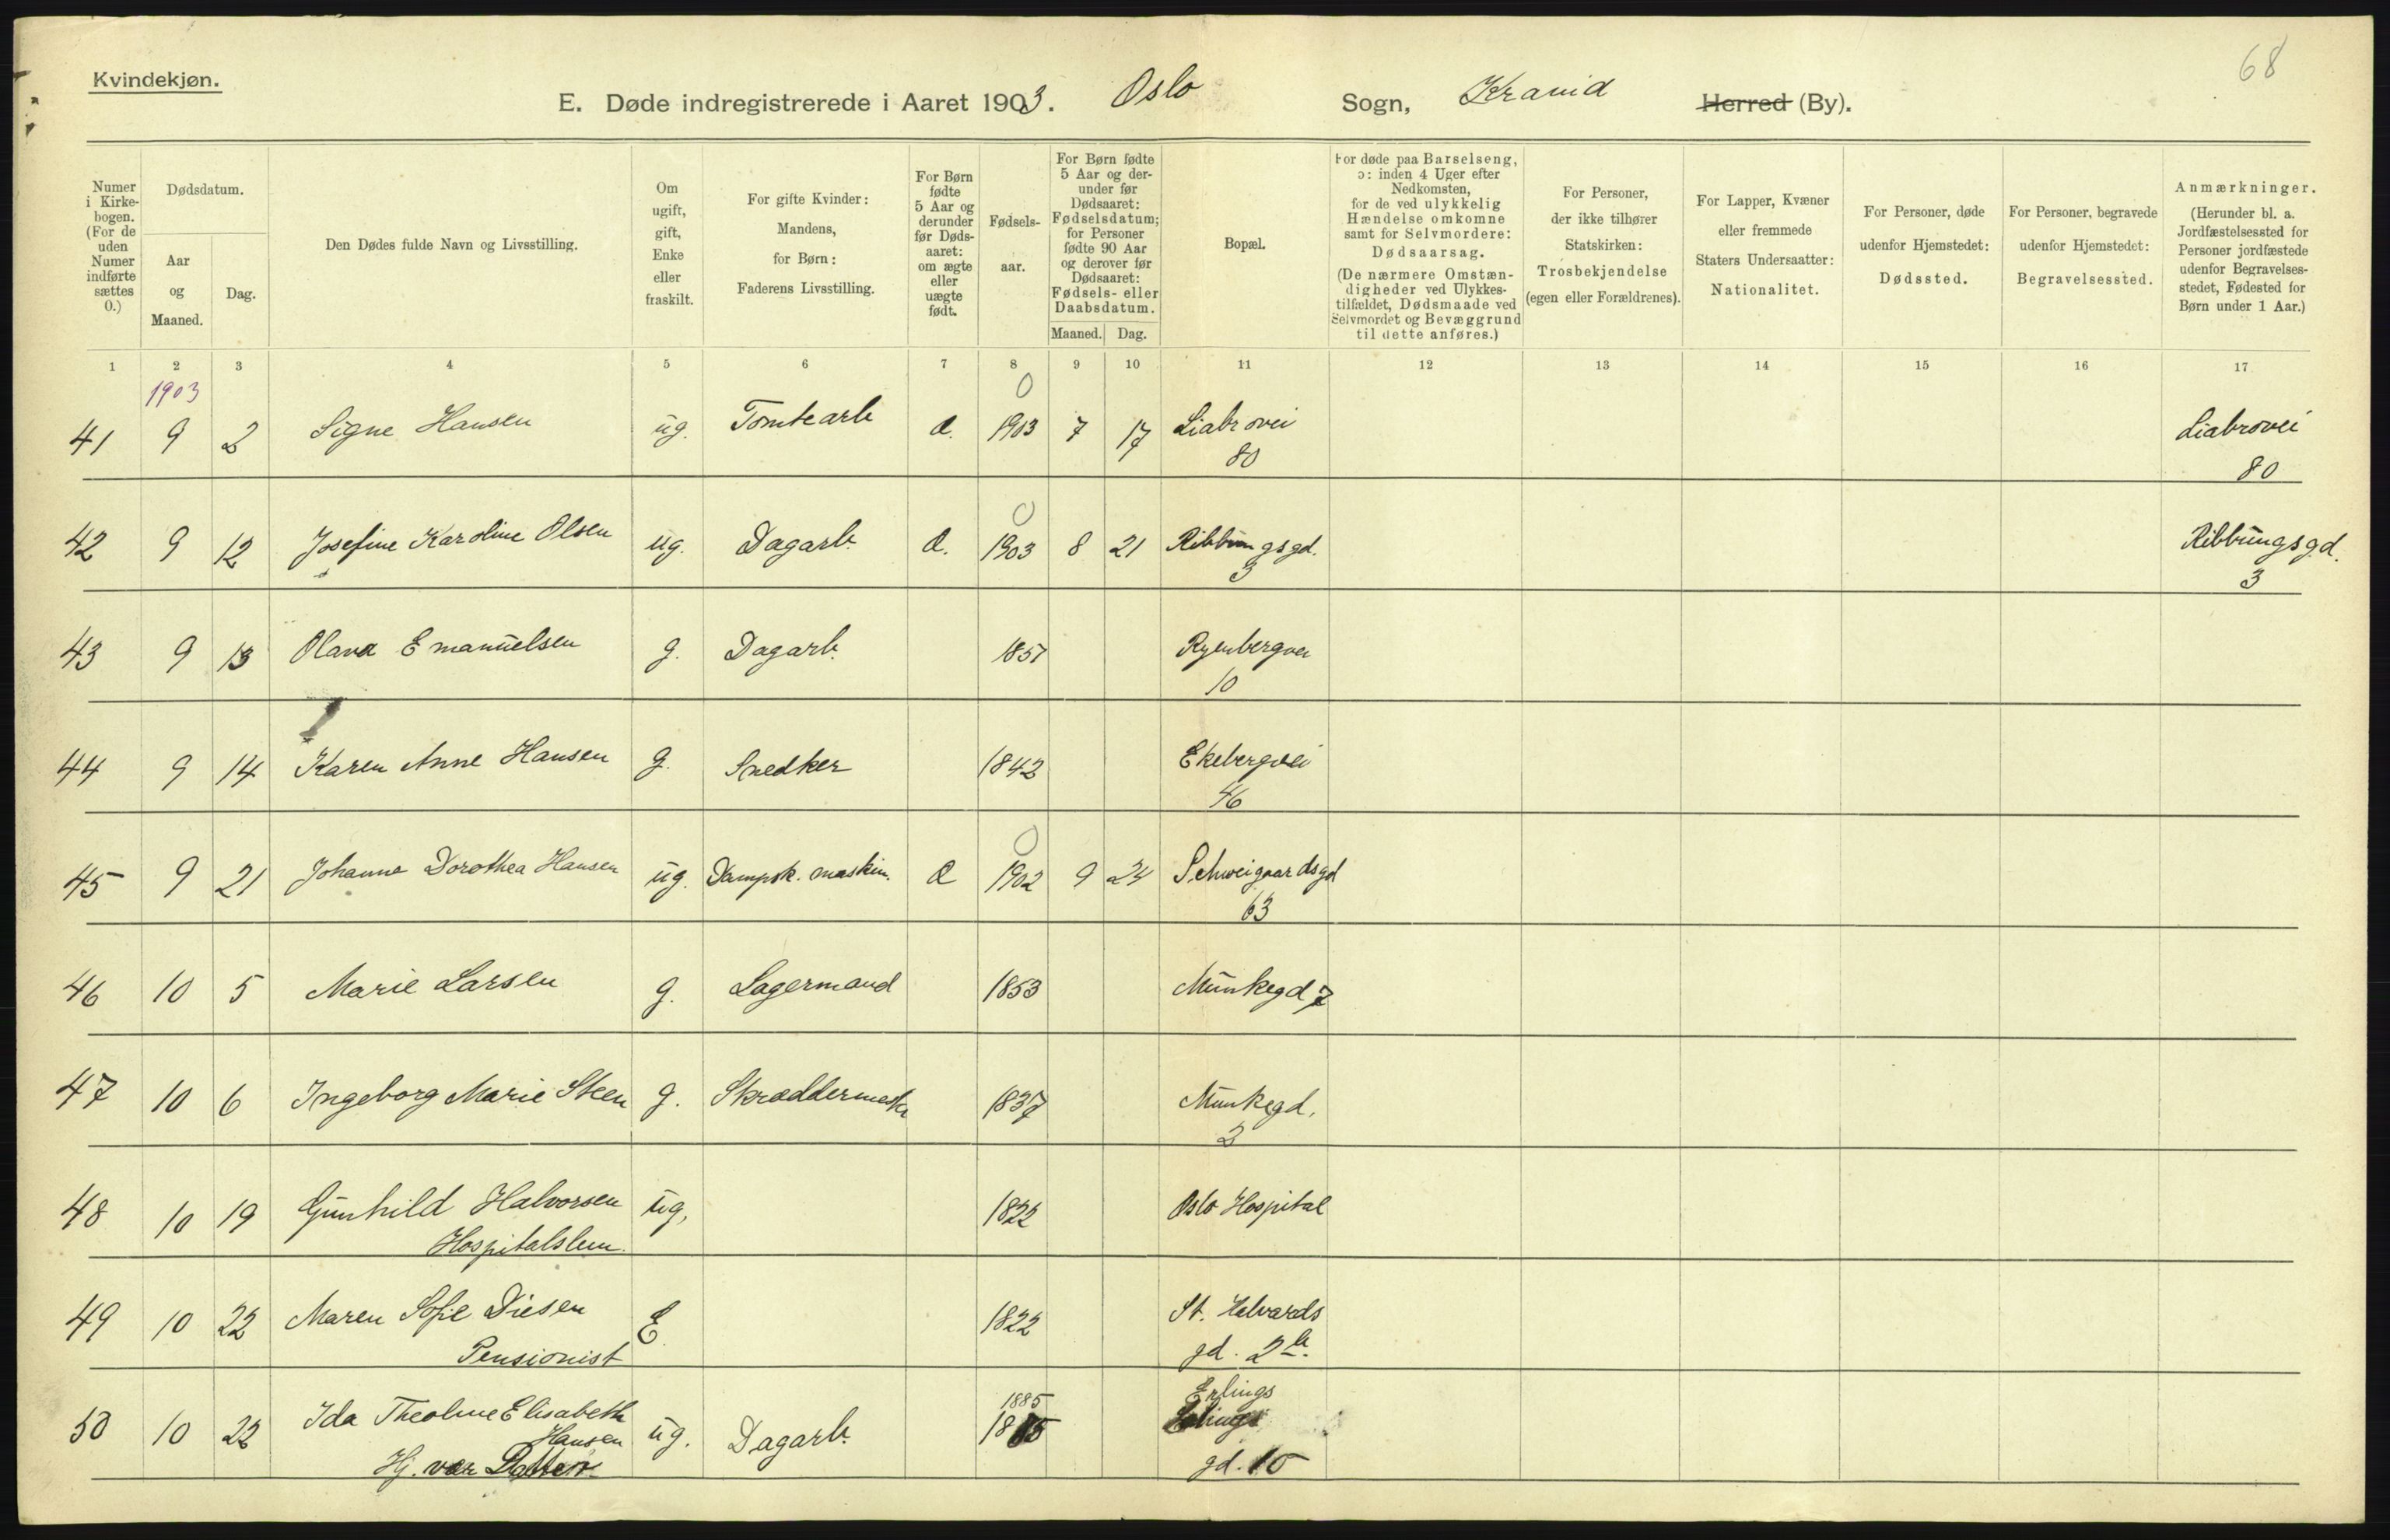 68
Kvindekjøn.
E. Døde indregistrerede i Aaret 1903. Oslo Sogn, Kra Herred (By).
Numer i Kirkebogen. (For de uden Numer indførte sættes 0.)
Dødsdatum.
Aar og Maaned.
Dag.
Den Dødes fulde Navn og Livsstilling.
Om ugift, gift, Enke eller fraskilt.
For gifte Kvinder: Mandens, for Børn: Faderens Livsstilling.
For Børn fødte 5 Aar og derunder før Dødsaaret: om ægte eller uægte født.
Fødselsaar.
For Børn fødte 5 Aar og derunder før Dødsaaret: Fødselsdatum; for Personer fødte 90 Aar og derover før Dødsaaret: Fødsels- eller Daabsdatum.
Maaned. Dag.
Bopæl.
For døde paa Barselseng, ɔ: inden 4 Uger efter Nedkomsten, for de ved ulykkelig Hændelse omkomne samt for Selvmordere: Dødsaarsag. (De nærmere Omstændigheder ved Ulykkestilfældet, Dødsmaade ved Selvmordet og Bevæggrund til dette anføres.)
For Personer, der ikke tilhører Statskirken: Trosbekjendelse (egen eller Forældrenes).
For Lapper, Kvæner eller fremmede Staters Undersaatter: Nationalitet.
For Personer, døde udenfor Hjemstedet: Dødssted.
For Personer, begravede udenfor Hjemstedet: Begravelsessted.
Anmærkninger. (Herunder bl. a. Jordfæstelsessted for Personer jordfæstede udenfor Begravelsesstedet, Fødested for Børn under 1 Aar.)
1 2 3 4 5 6 7 8 9 10 11 12 13 14 15 16 17
1903 0
41 9 2 Signe Hansen ug. Tomtearb Æ. 1903 7 17 Liabrovei Liabrovei
80 80
0
42 9 12 Josefine Karoline Olsen ug. Dagarb. Æ. 1903 8 21 Ribbungsgd. Ribbungsgd.
3 3
43 9 13 Olava Emanuelsen g. Dagarb. 1857 Ryenbergvei
10
44 9 14 Karen Anne Hansen g. Snedker 1842 Ekebergvei
46
0
45 9 21 Johanne Dorothea Hansen ug. Dampsk. maskin. Æ 1902 9 24 Schweigaardsgd
63
46 10 5 Marie Larsen g. Lagermand 1853 Munkegd 7
47 10 6 Ingeborg Marie Steen g. Skræddermester 1837 Munkegd.
2
48 10 19 Gunhild Halvorsen ug, 1822 Oslo Hospital
Hospitalslem.
49 10 22 Maren Sofie Diesen E. 1822 St. Halvards
Pensionist gd. 2 b.
1885 Erlings
50 10 22 Ida Theoline Elisabeth ug. Dagarb. 18 5
Hansen
Hj. vær. Datter gd. 10